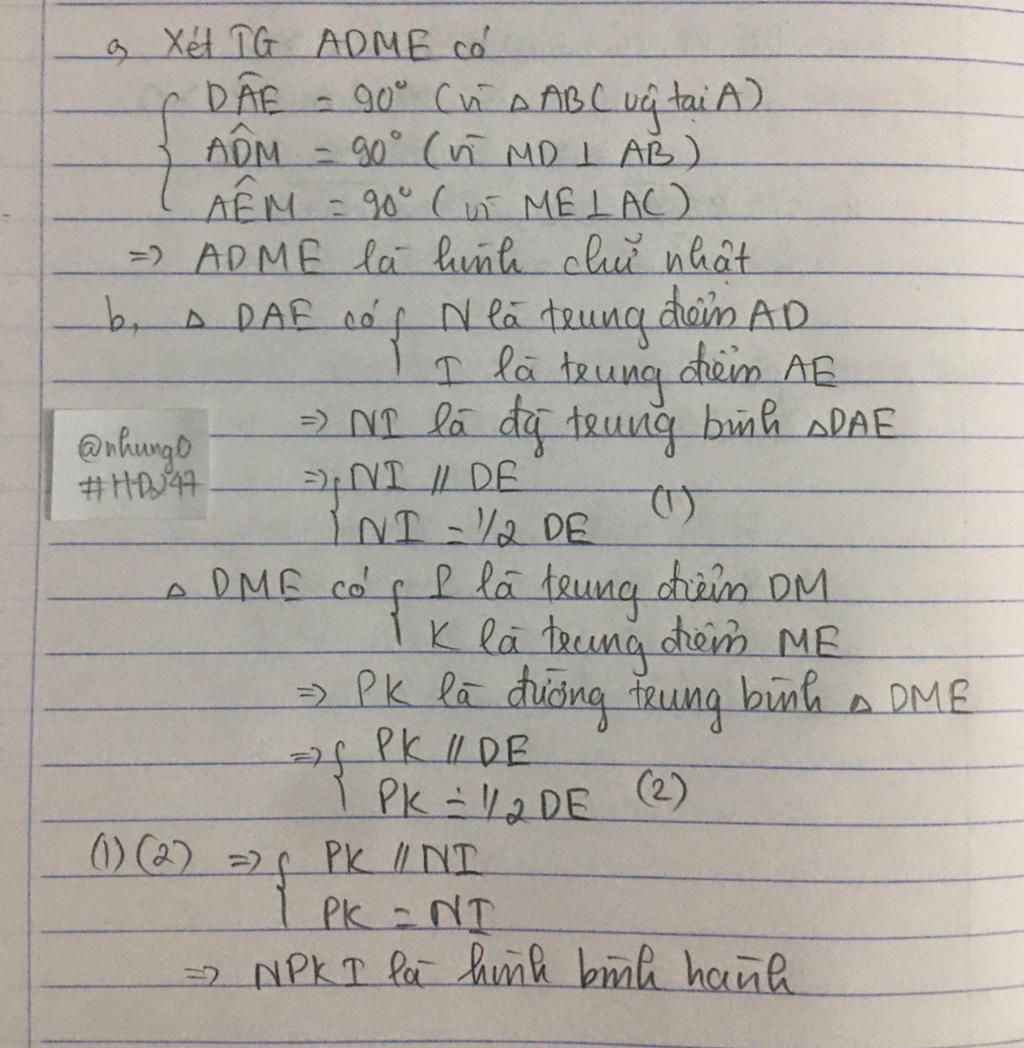 a, Xét TG ADME có
DÂE = 90° (vì △ ABC vg tại A)
AD̂M = 90° (vì MD ⊥ AB)
AÊM = 90° (vì ME ⊥ AC)
=> ADME là hình chữ nhật
b, △ DAE có { N là trung điểm AD
I là trung điểm AE
=> NI là đg trung bình △DAE
@nhung0
#HDJ47
=> { NI // DE
NI = 1/2 DE (1)
△ DME có { P là trung điểm DM
K là trung điểm ME
=> PK là đường trung bình △ DME
=> { PK // DE
PK = 1/2 DE (2)
(1) (2) => { PK // NI
PK = NI
=> NPKI là hình bình hành